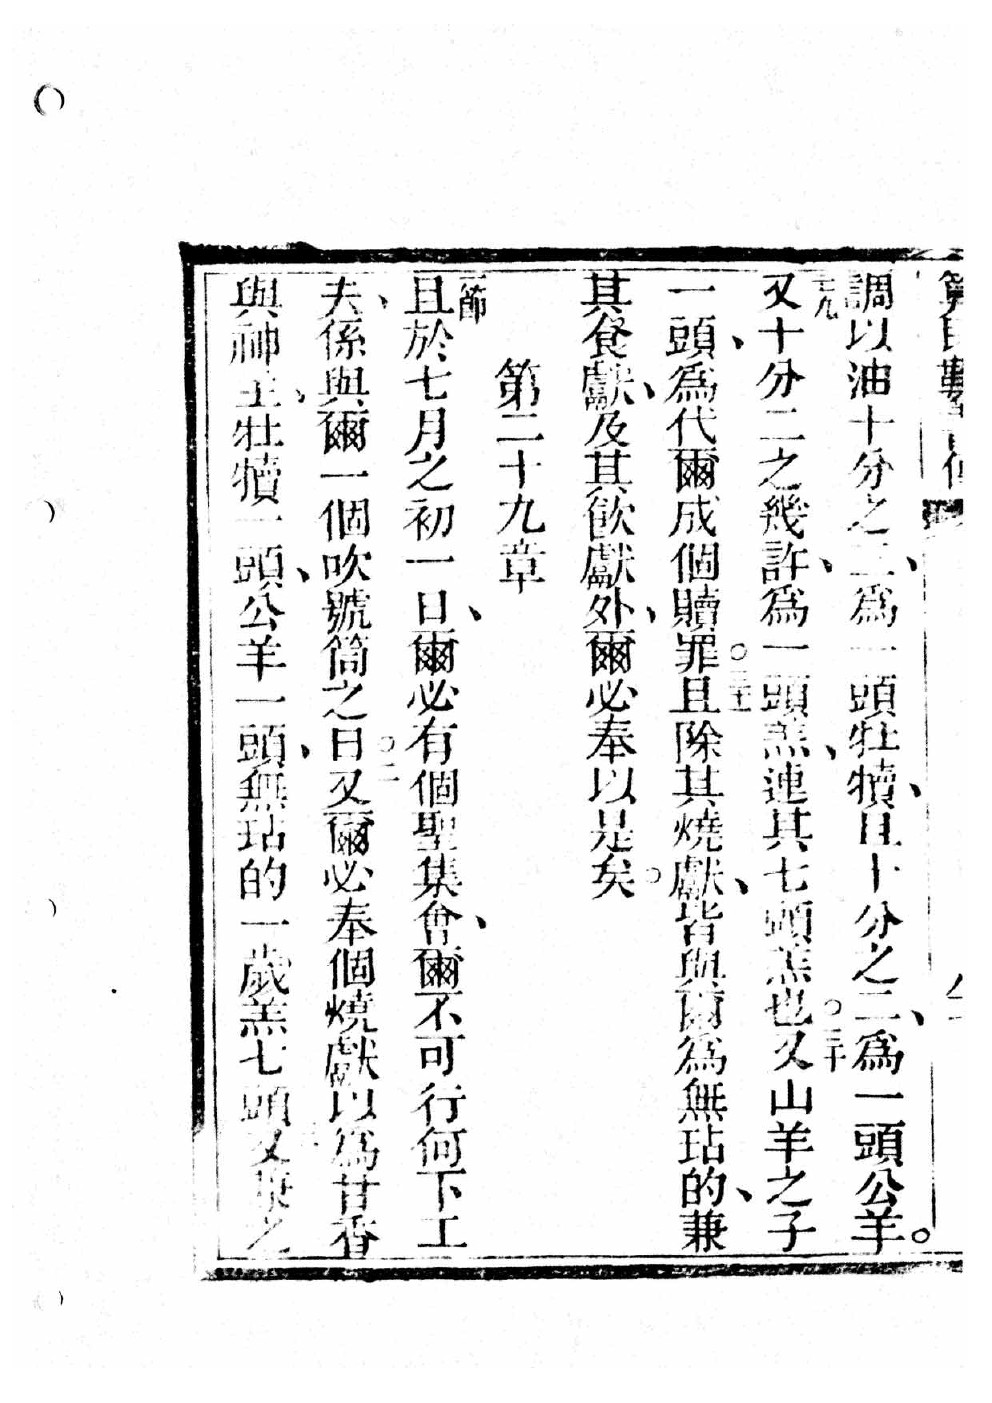 算民數書傳
調以油十分之三、爲一頭牡犢、且十分之二、爲一頭公羊。
二九又十分二之幾許、爲一頭羔、連其七頭羔也○三十又山羊之子
一頭、爲代爾成個贖罪○三十一且除其燒獻、皆與爾爲無玷的、兼
其食獻、及其飲獻外、爾必奉以是矣○
第二十九章
一節且於七月之初一日、爾必有個聖集會、爾不可行何下工
夫、係與爾一個吹號筒之日○二又爾必奉個燒獻以爲甘香
與神主、牡犢一頭、公羊一頭、無玷的一歲羔七頭又兼之